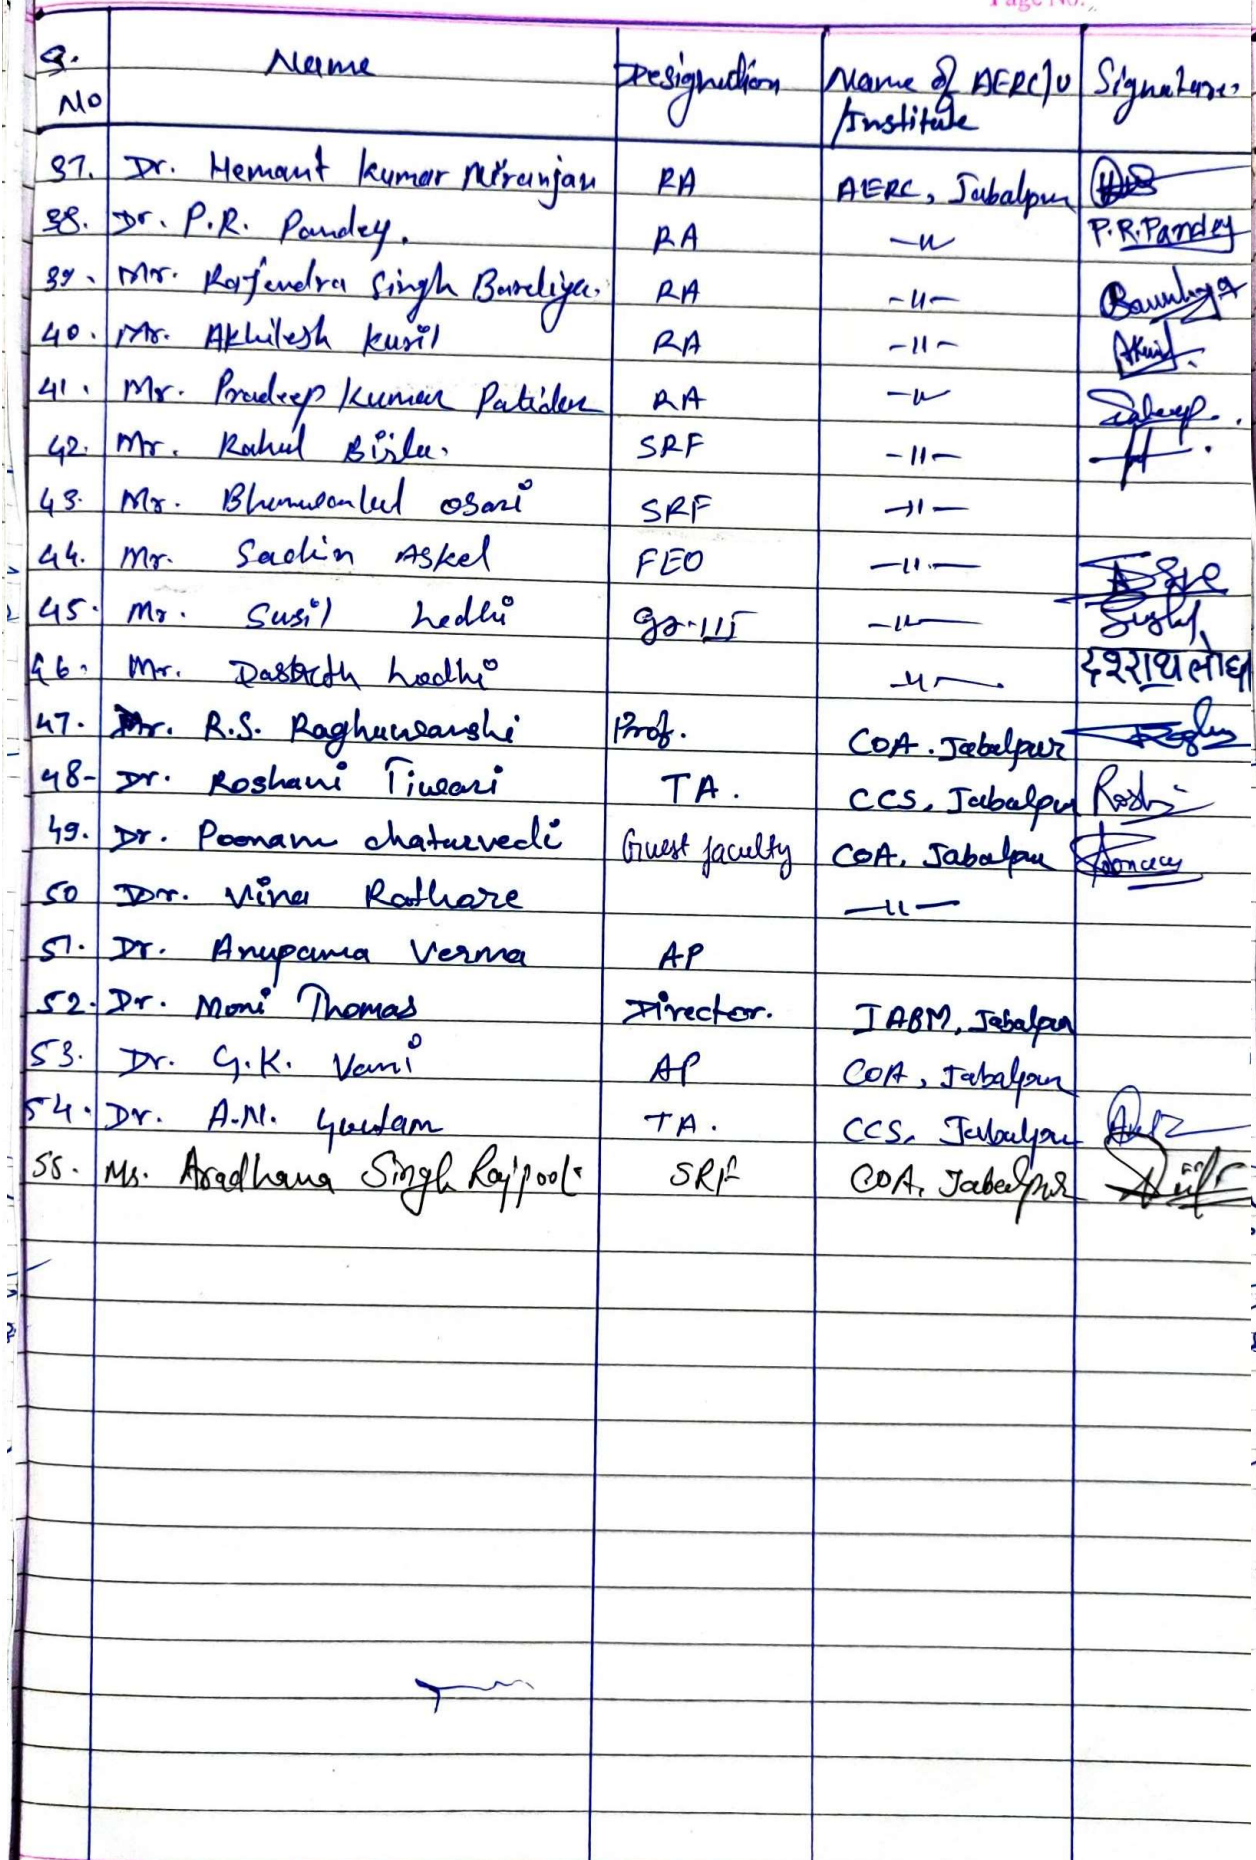 Page No.
S. No Name Designation Name of AERC/U /Institute Signature
37. Dr. Hemant Kumar Niranjan RA AERC, Jabalpur
38. Dr. P.R. Pandey. RA -11- P.R.Pandey
39. Mr. Rajendra Singh Bareliya. RA -11-
40. Mr. Akhilesh Kuril RA -11- AKuril.
41. Mr. Pradeep Kumar Patidar RA -11-
42. Mr. Rahul SRF -11-
43. Mr. SRF -11-
44. Mr. Sachin Askel FEO -11-
45. Mr. Susil Lodhi -11-
46. Mr. Lodhi -11- दशराथ लोधी
47. Dr. R.S. Raghuwanshi Prof. COA. Jabalpur
48- Dr. Roshani Tiwari TA. CCS, Jabalpur
49. Dr. Poonam chaturvedi Guest faculty COA, Jabalpur
50 Dr. Vina Rathore -11-
51. Dr. Anupama Verma AP
52. Dr. Moni Thomas Director. IABM, Jabalpur
53. Dr. G.K. Vani AP COA, Jabalpur
54. Dr. A.N. Gautam TA. CCS, Jabalpur
55. Ms. Aradhana Singh Rajpoot SRF COA, Jabalpur